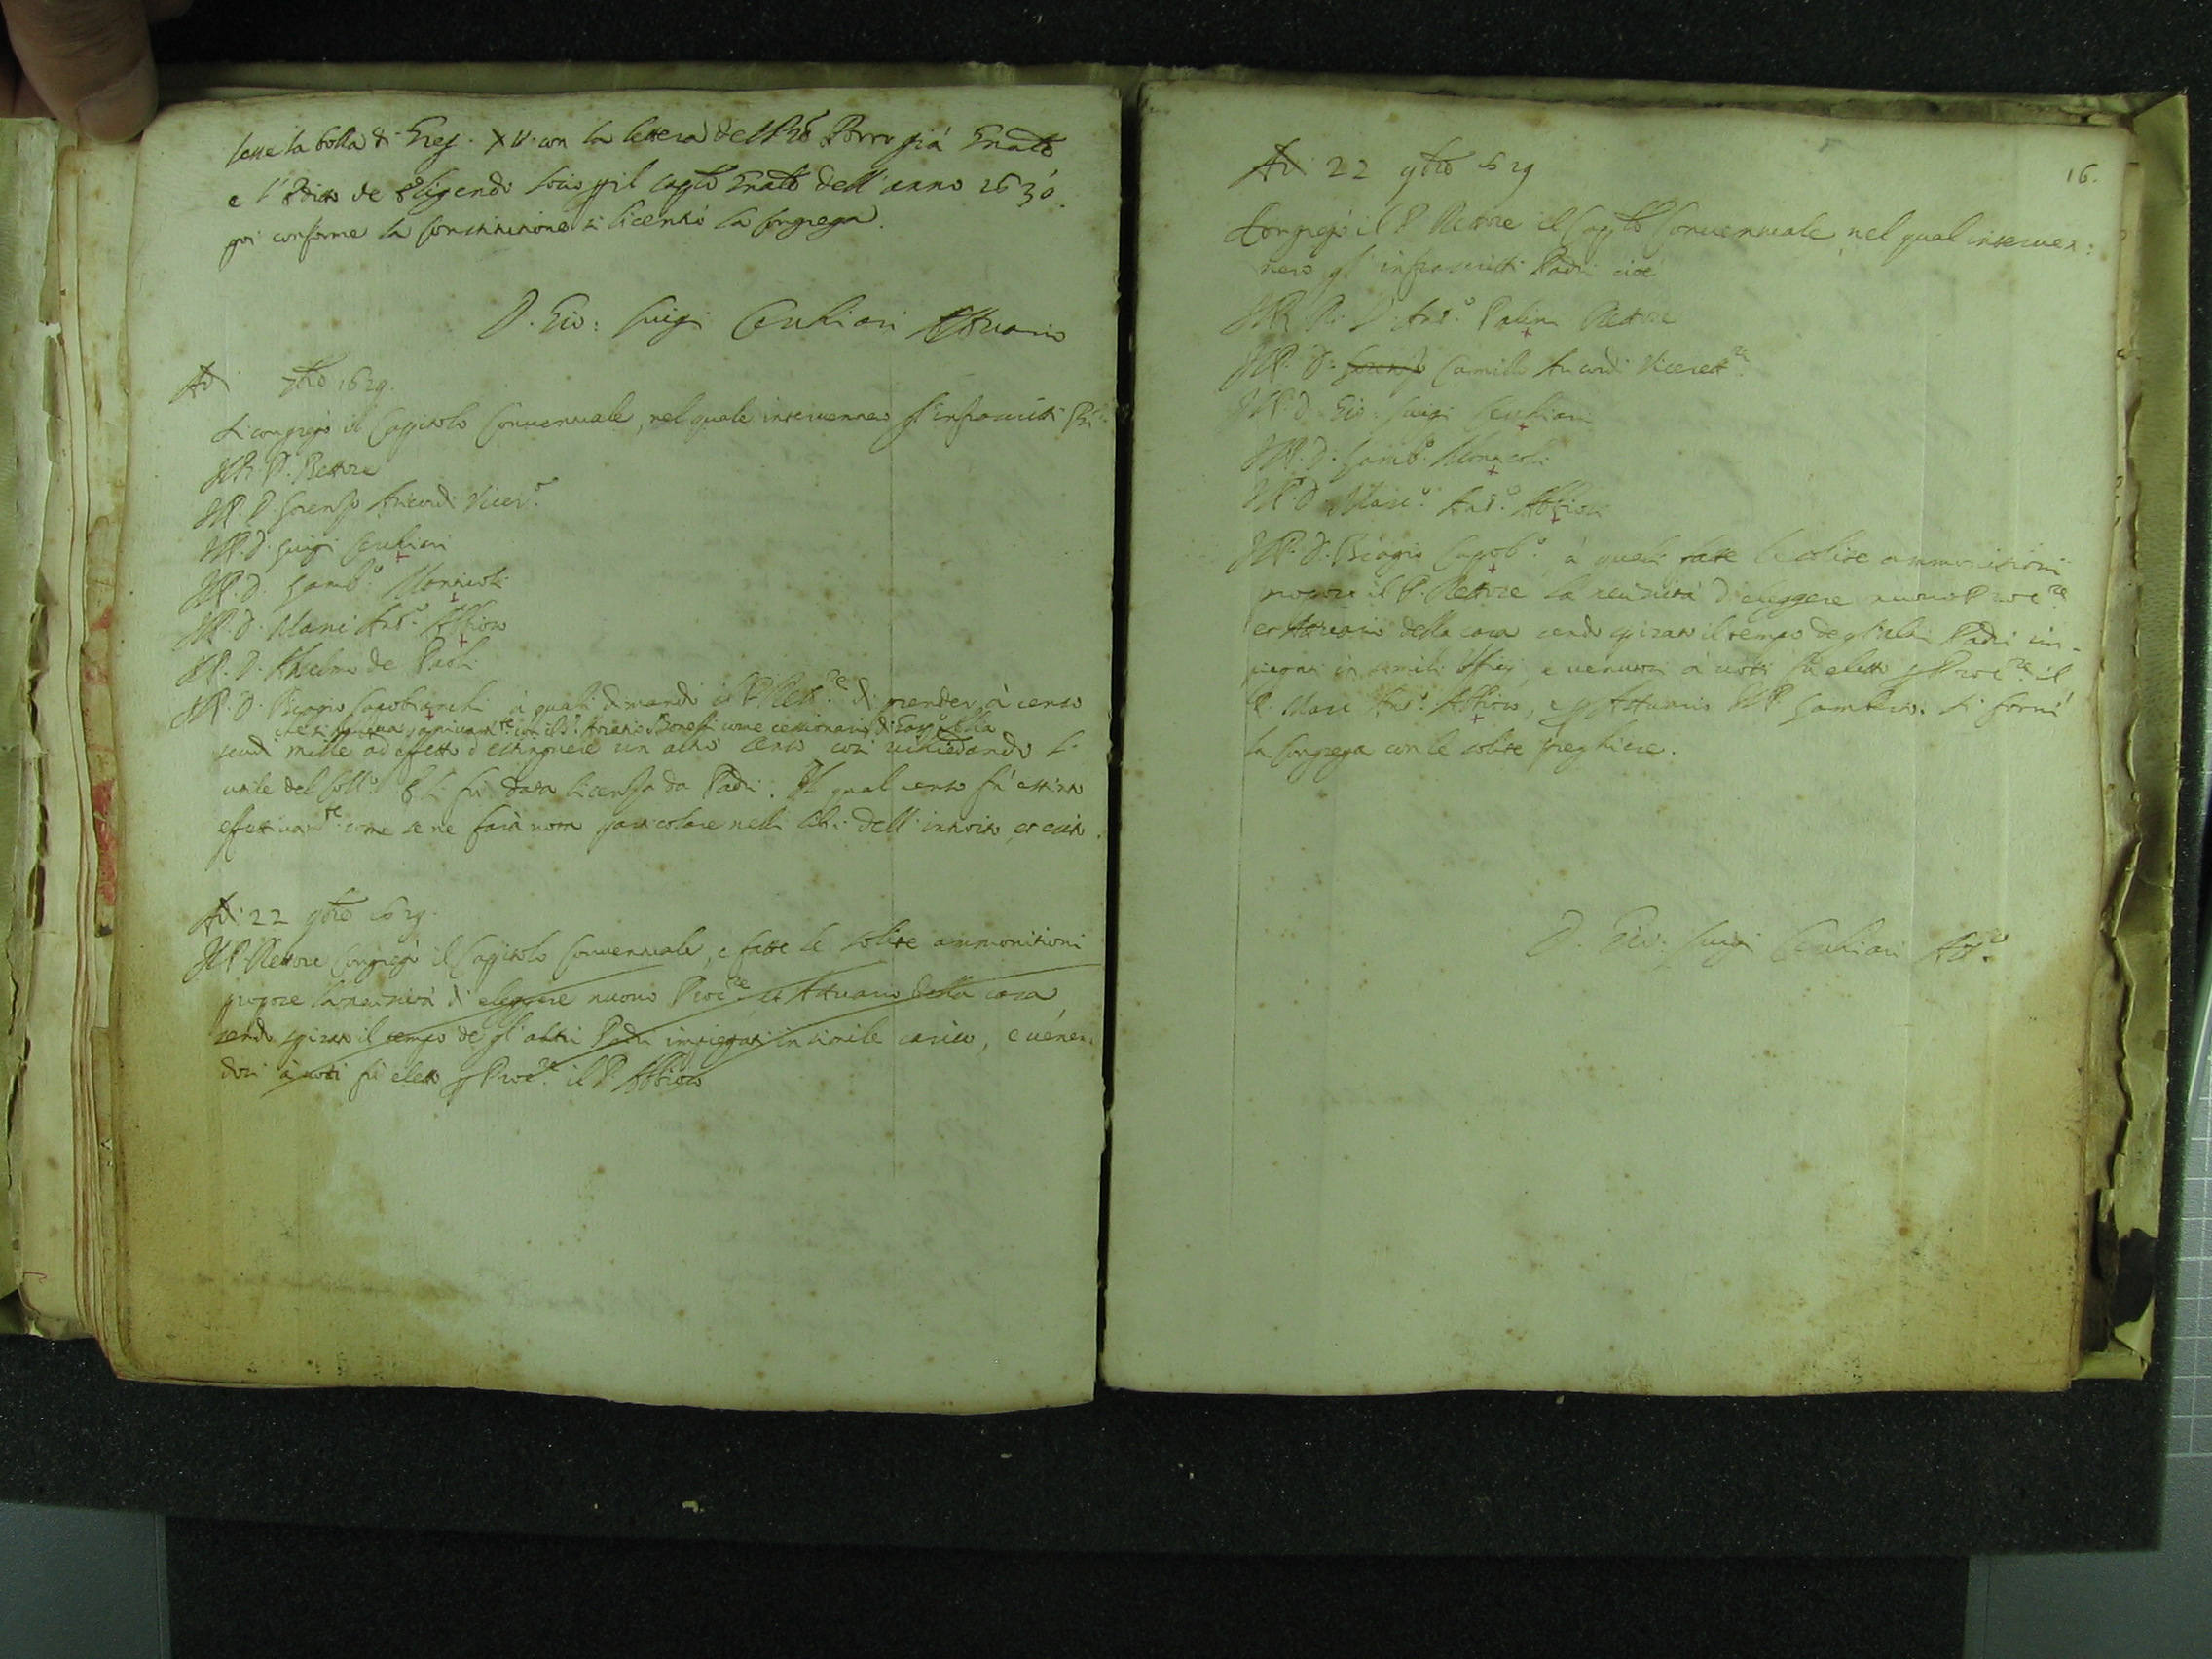 lesse la bolla di Greg. XV. con la lettera del Pre Porro già Gnale
e l'Editto de Eligendo Socio p il Caplo Gnale dell'anno 1630.
poi conforme la Constitutione si licentiò la Congrega.
D. Gio: Luigi Cerchiari Attuario
Adi 7bre 1629.
Si congregò il Capitolo Conventuale, nel quale intervennero gl'infrascritti Pri
Il P. D. Rettore
Il P. D. Lorenzo Ancardi Vicer.o
Il P. D. Luigi Cerchiari
Il P. D. Lamb.o
Il P. D. Marc' Ant.o Abbiosi
Il P. D. Anselmo de Paoli
Il P. D. Biagio Capobianchi à quali dimandò il P. Rett.re di prender à censo
come cessionario di
scudi mille ad effetto d'estinguere un altro censo così richiedendo l'
utile del Coll.o E li fu data licenza da Padri. Il qual censo fu estinto
effettivam.te come se ne farà nota particolare nelli libri dell'introito, et exito.
Adi 22 9bre 1629.
Il P. Rettore Congregò il Capitolo Conventuale, e fatte le solite ammonitioni
propose la necessità di eleggere nuovo Proc.re et Attuario della casa
sendo spirato il tempo de gl'altri Padri impiegati in simile carico, e venen
dosi à voti fu eletto p Proc.re il P. Abbiosi
16.
Adi 22 9bre 1629
Congregò il P. Rettore il Caplo Conventuale, nel qual interven:
nero gl'infrascritti Padri cioè
Il P. D. Ant.o Palini Rettore
Il P. D. Lorenzo Camillo Ancardi Vicerett.re
Il P. D. Gio: Luigi Cerchiari
Il P. D. Lamb.o
Il P. D. Marc.o Ant.o Abbiosi
Il P. D. Biagio Capob.o à quali fatte le solite ammonitioni
propose il P. Rettore la necessità d'eleggere nuovo Proc.re
et Attuario della casa sendo spirato il tempo de gl'altri Padri im-
piegati in simili Officij, e venutosi à voti fu eletto p Proc.re il
P. Marc' Ant.o Abbiosi, e p Attuario Il P. Lamberto. Si fornì
la Congrega con le solite preghiere.
D. Gio: Luigi Cerchiari Att.o